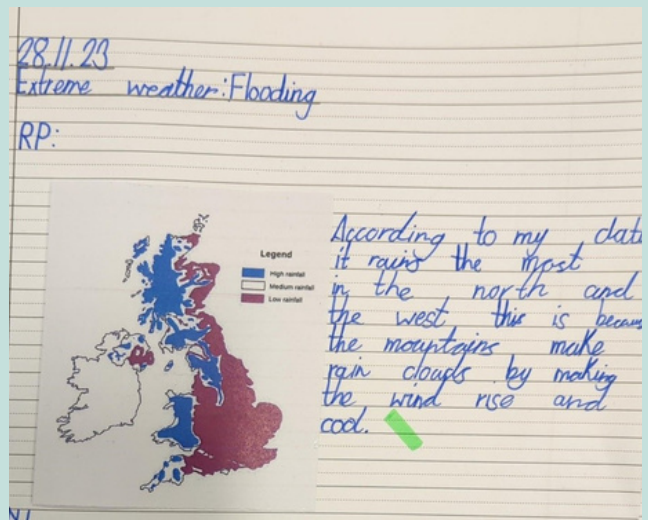 28.11.23
Extreme weather: Flooding
RP:
Legend
High rainfall
Medium rainfall
Low rainfall
According to my data
it rains the most
in the north and
the west this is becaus
the mountains make
rain clouds by making
the wind rise and
cool.